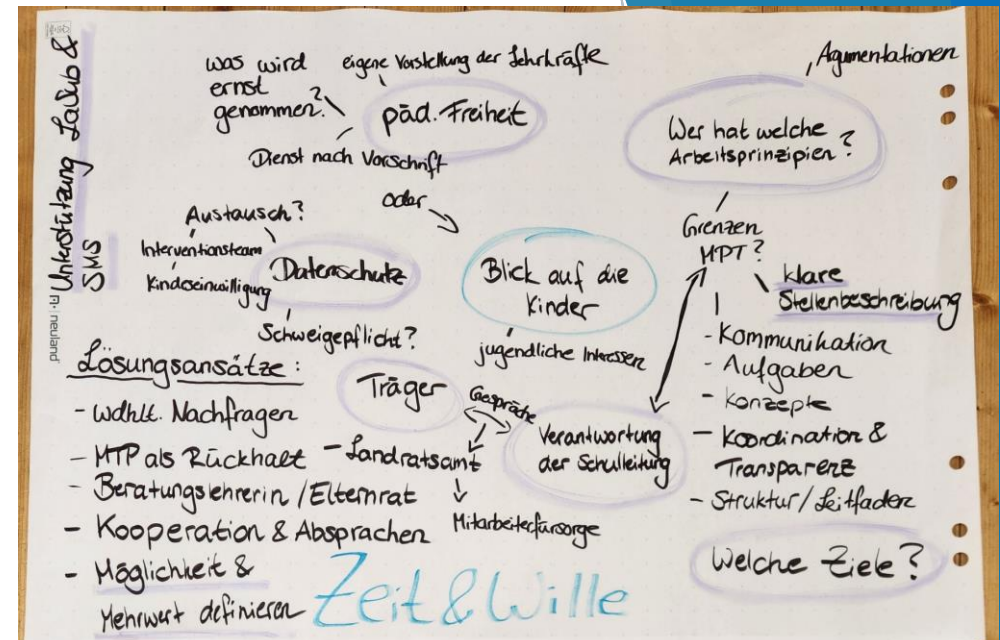 Unterstützung LaSuB &
SMS
neuland
was wird
ernst
genommen?
eigene Vorstellung der Lehrkräfte
päd. Freiheit
Dienst nach Vorschrift
oder
Argumentationen
Wer hat welche
Arbeitsprinzipien?
Grenzen
MPT?
klare
Stellenbeschreibung
- Kommunikation
- Aufgaben
- Konzepte
- Koordination &
Transparenz
- Struktur/Leitfaden
Welche Ziele?
Austausch?
Interventionsteam
Kindeseinwilligung
Datenschutz
Schweigepflicht?
Blick auf die
Kinder
jugendliche Interessen
Träger
Gespräche
Verantwortung
der Schulleitung
- Landratsamt
Mitarbeiterfürsorge
Lösungsansätze:
- wdhlt. Nachfragen
- MTP als Rückhalt
- Beratungslehrerin/Elternrat
- Kooperation & Absprachen
- Möglichkeit &
Mehrwert definieren
Zeit & Wille